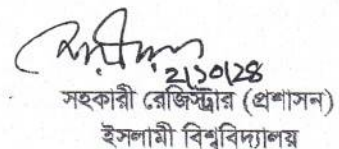 ২/১০/২৪
সহকারী রেজিস্ট্রার (প্রশাসন)
ইসলামী বিশ্ববিদ্যালয়